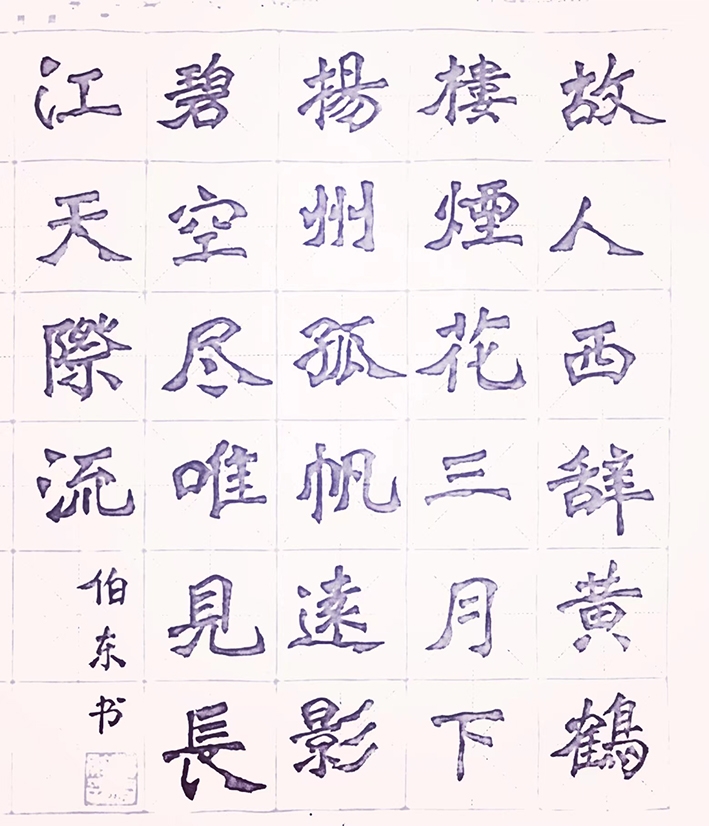 故人西辞黄鹤
樓煙花三月下
揚州孤帆遠影
碧空尽唯見長
江天際流
伯东书